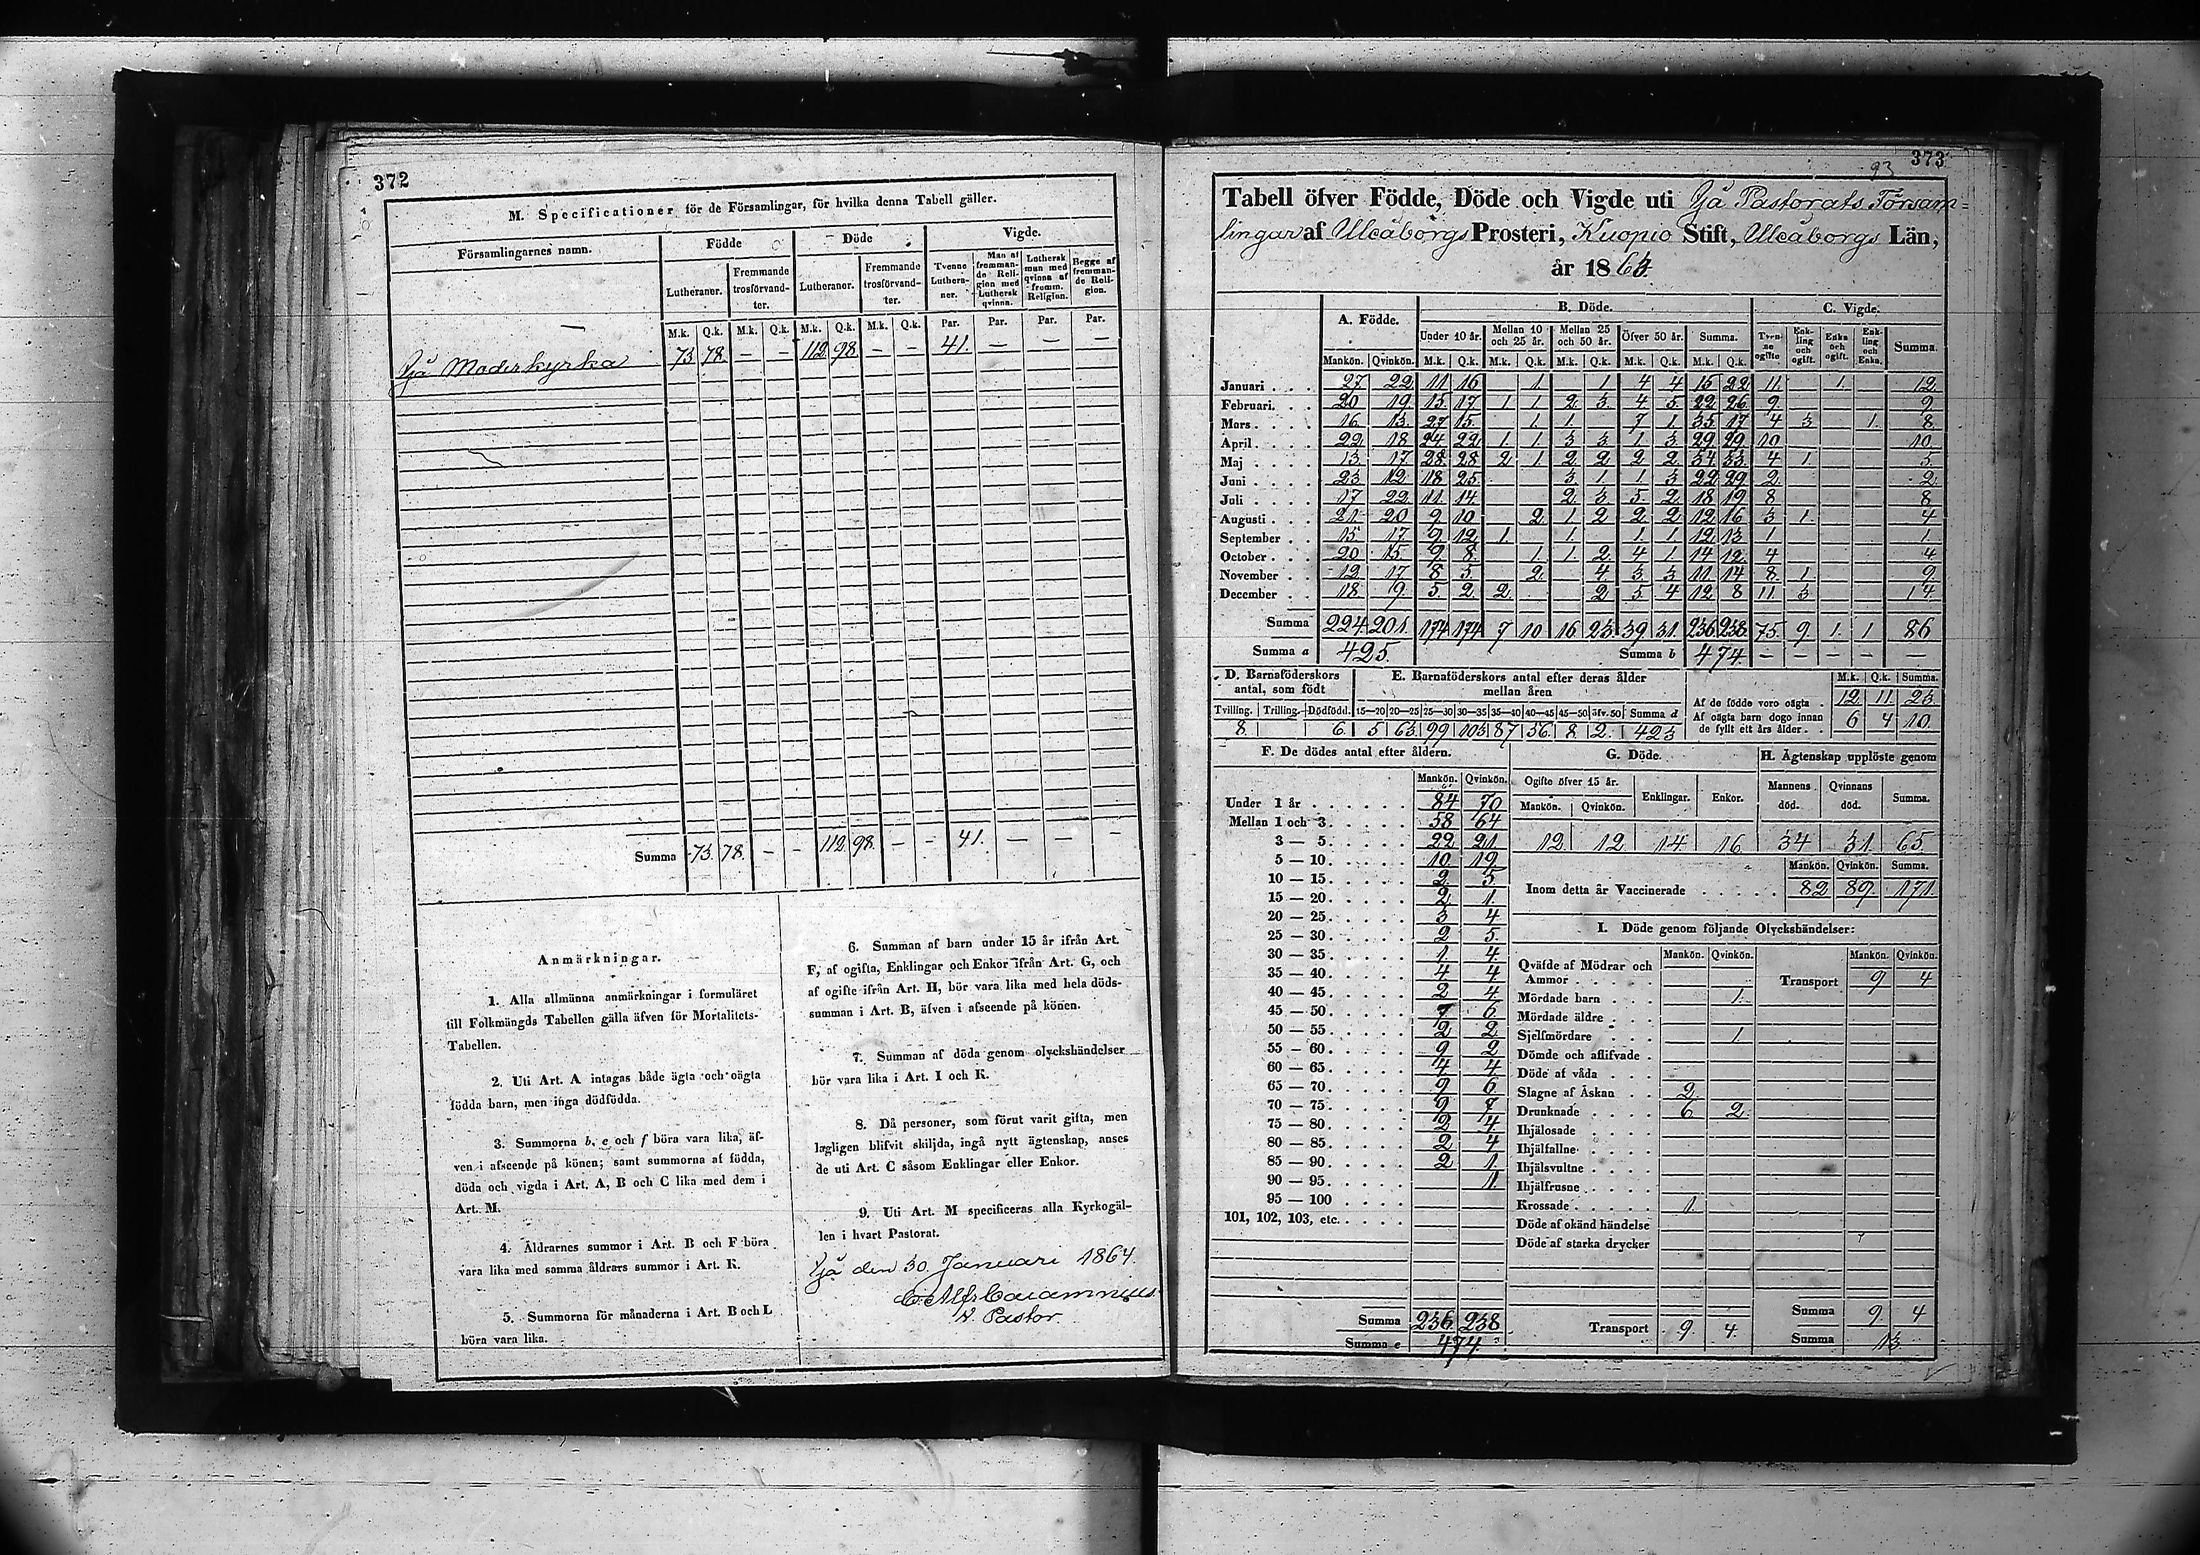 372
M. Specificationer för de Församlingar, för hvilka denna Tabell gäller.
Församlingarnes namn. Födde Döde Vigde.
Lutheraner. Fremmande trosförvandter. Lutheraner. Fremmande trosförvandter. Tvenne Lutheraner. Man af fremmande Religion med Luthersk qvinna. Luthersk man med qvinna af fremm. Religion. Begge af fremmande Religion.
M.k. Q.k. M.k. Q.k. M.k. Q.k. M.k. Q.k. Par. Par. Par. Par.
Ijå Moderkyrka 73 78 — — 112 98 — — 41. — — —
Summa 73. 78. — — 112 98. — — 41. — — —
Anmärkningar.
1. Alla allmänna anmärkningar i formuläret
till Folkmängds Tabellen gälla äfven för Mortalitets-
Tabellen.
2. Uti Art. A intagas både ägta och oägta
födda barn, men inga dödfödda.
3. Summorna b, e och f böra vara lika, äf-
ven i afseende på könen; samt summorna af födda,
döda och vigda i Art. A, B och C lika med dem i
Art. M.
4. Åldrarnes summor i Art. B och F böra
vara lika med samma åldrars summor i Art. K.
5. Summorna för månaderna i Art. B och L
böra vara lika.
6. Summan af barn under 15 år ifrån Art.
F, af ogifta, Enklingar och Enkor ifrån Art. G, och
af ogifte ifrån Art. H, bör vara lika med hela döds-
summan i Art. B, äfven i afseende på könen.
7. Summan af döda genom olyckshändelser
bör vara lika i Art. I och K.
8. Då personer, som förut varit gifta, men
lagligen blifvit skiljda, ingå nytt ägtenskap, anses
de uti Art. C såsom Enklingar eller Enkor.
9. Uti Art. M specificeras alla Kyrkogäl-
len i hvart Pastorat.
Ijå den 30. Januari 1864.
V. Pastor
93 373
Tabell öfver Födde, Döde och Vigde uti Ijå Pastorats Församlingar
af Uleåborgs Prosteri, Kuopio Stift, Uleåborgs Län,
år 1863.
A. Födde. B. Döde. C. Vigde.
Under 10 år. Mellan 10 och 25 år. Mellan 25 och 50 år. Öfver 50 år. Summa. Tvenne ogifte Enkling och ogift. Enka och ogift. Enkling och Enka. Summa.
Mankön. Qvinkön. M.k. Q.k. M.k. Q.k. M.k. Q.k. M.k. Q.k. M.k. Q.k.
Januari 27 22 11 16 1 1 4 4 15 22 11 1 12
Februari. 20 19 15 17 1 1 2 3 4 5 22 26 9 9
Mars 16 13 27 15 1 1 7 1 35 17 4 3 1 8
April 22 18 24 22 1 1 3 3 1 3 29 29 10 10
Maj 13 17 28 28 2 1 2 2 2 2 34 33 4 1 5
Juni 23 12 18 25 3 1 1 3 22 29 2 2
Juli 17 22 11 14 2 3 5 2 18 19 8 8
Augusti 21 20 9 10 2 1 2 2 2 12 16 3 1 4
September 15 17 9 12 1 1 1 1 12 13 1 1
October 20 15 9 8 1 1 2 4 1 14 12 4 4
November 12 17 8 5 2 4 3 3 11 14 8 1 9
December 18 9 5 2 2 2 5 4 12 8 11 3 14
Summa 224 201 174 174 7 10 16 23 39 31 236 238 75 9 1 1 86
Summa a 425. Summa b 474 — — — — —
D. Barnaföderskors antal, som födt
Tvilling. Trilling. Dödfödd.
8 6
E. Barnaföderskors antal efter deras ålder mellan åren
15—20 20—25 25—30 30—35 35—40 40—45 45—50 öfv. 50 Summa d
5 63 99 103 87 56 8 2 423
M.k. Q.k. Summa.
Af de födde voro oägta 12 11 23
Af oägta barn dogo innan de fyllt ett års ålder 6 4 10
F. De dödes antal efter åldern.
Mankön. Qvinkön.
Under 1 år 84 70
Mellan 1 och 3 58 64
3 — 5 22 21
5 — 10 10 19
10 — 15 2 5
15 — 20 2 1
20 — 25 3 4
25 — 30 2 5
30 — 35 1 4
35 — 40 4 4
40 — 45 2 4
45 — 50 7 6
50 — 55 2 2
55 — 60 9 2
60 — 65 4 4
65 — 70 9 6
70 — 75 9 7
75 — 80 2 4
80 — 85 2 4
85 — 90 2 1
90 — 95 1
95 — 100
101, 102, 103, etc.
Summa 236 238
Summa e 474
G. Döde.
Ogifte öfver 15 år. Enklingar. Enkor.
Mankön. Qvinkön.
12 12 14 16
H. Ägtenskap upplöste genom
Mannens död. Qvinnans död. Summa.
34 31 65
Mankön. Qvinkön. Summa.
Inom detta år Vaccinerade 82 89 171
I. Döde genom följande Olyckshändelser:
Mankön. Qvinkön. Mankön. Qvinkön.
Qväfde af Mödrar och Ammor Transport 9 4
Mördade barn 1
Mördade äldre
Sjelfmördare 1
Dömde och aflifvade
Döde af våda
Slagne af Åskan 2
Drunknade 6 2
Ihjälosade
Ihjälfallne
Ihjälsvultne
Ihjälfrusne
Krossade 1
Döde af okänd händelse
Döde af starka drycker
Transport 9 4 Summa 9 4
Summa 13